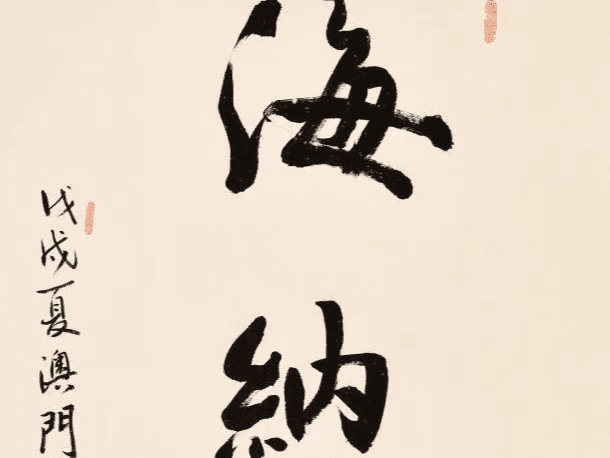 海納
戊戌夏澳門